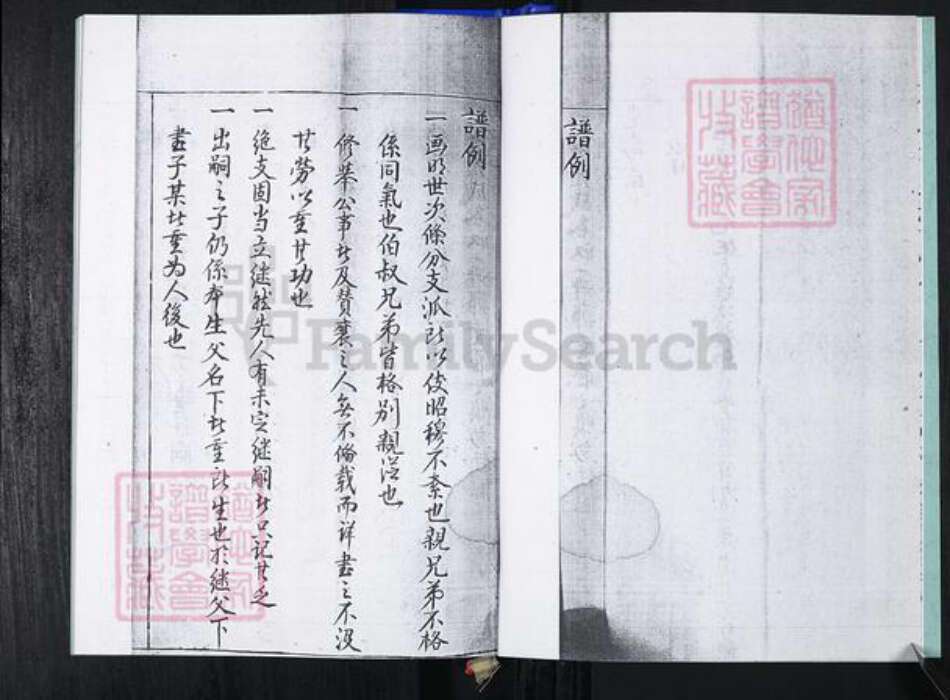 譜例
譜例
一画明世次條分支派所以使昭穆不紊也親兄弟不格
係同氣也伯叔兄弟皆格別親從也
一修舉公事者及贊襄之人無不備載而詳書之不沒
其勞以重其功也
一絶支固当立継然先人有未定継嗣者只記其乏
一出嗣之子仍係本生父名下者重所生也於継父下
書子某者重为人後也
猶他家
譜學會
收藏
猶他家
譜學會
收藏
FamilySearch